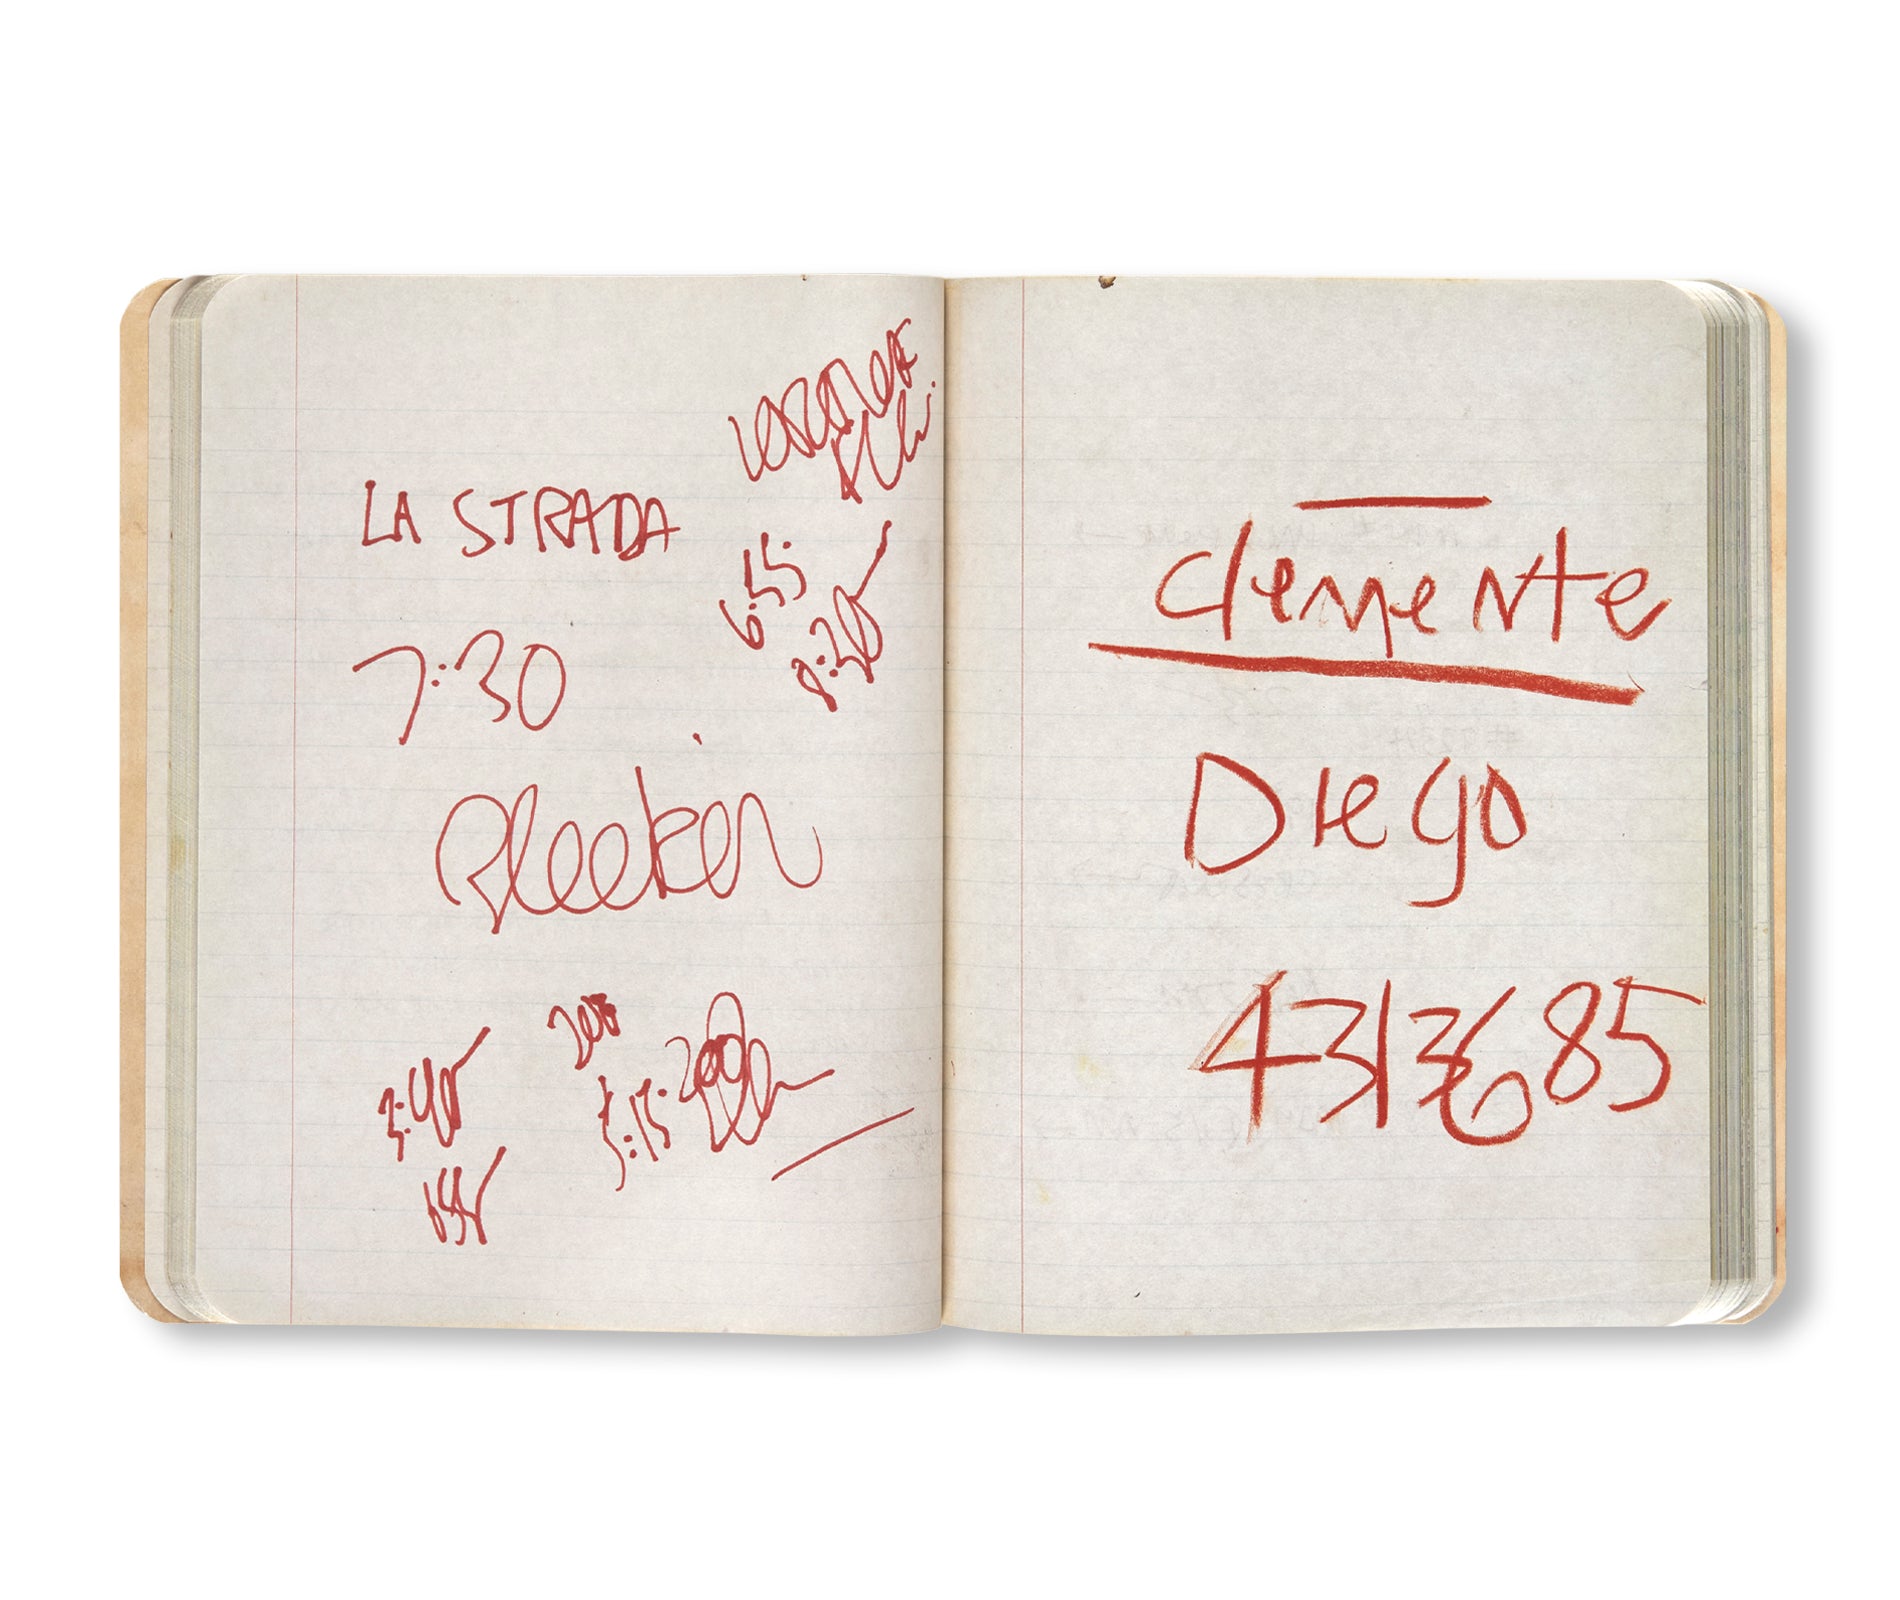 LA STRADA
6:55.
8:30
7:30
Bleeker
3:40
5:15.
Clemente
Diego
4313685